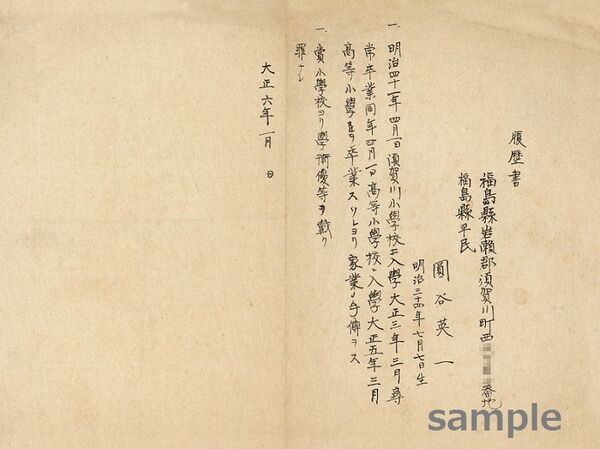 履歴書
福島縣岩瀬郡須賀川町西 番地
福島縣平民
圓谷英一
明治三十四年七月七日生
一、明治四十一年四月一日須賀川小學校ニ入學大正三年三月尋
常卒業同年四月一日高等小學校ニ入學大正五年三月
高等小學ヲ卒業スソレヨリ家業ノ手傳ヲス
一、賞小學校ヨリ學術優等ヲ戴ク
罪ナシ
大正六年一月 日
sample